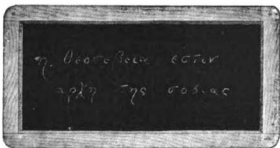 η θεοσεβεια εστιν
αρχη της σοφιας